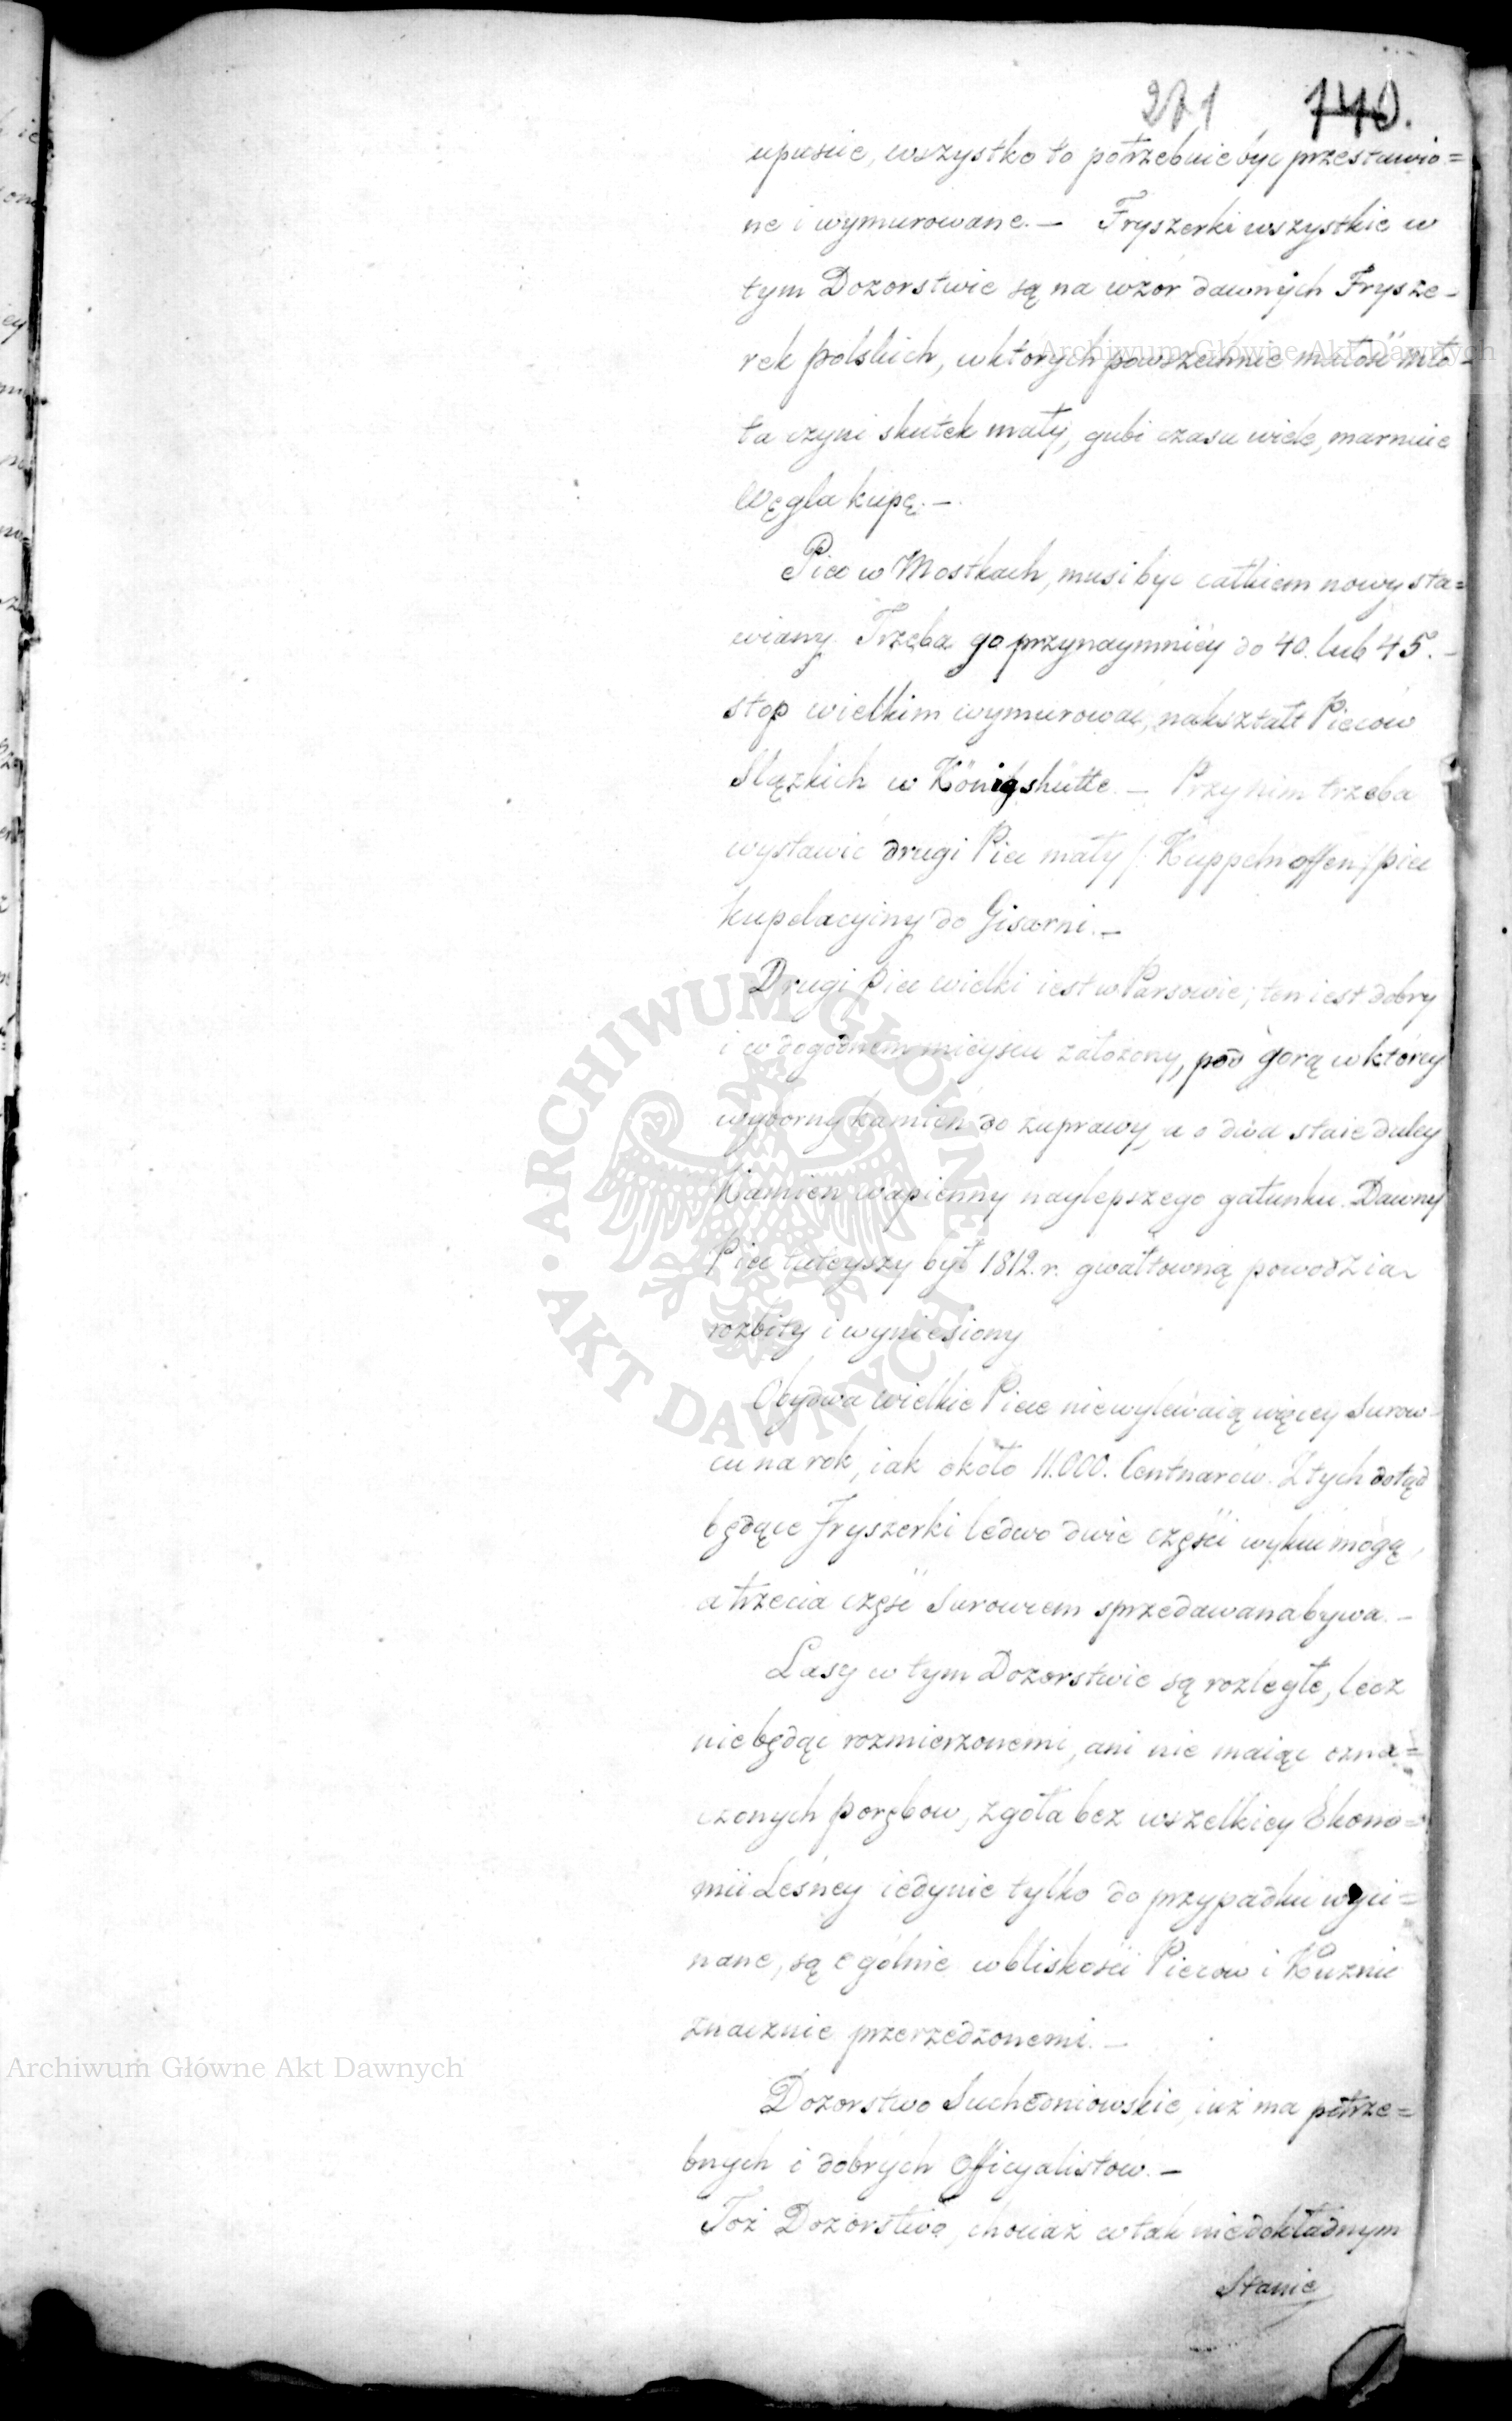 271 140.
upuście, wszystko to potrzebuie być przestawio=
ne i wymurowane. — Fryszerki wszystkie w
tym Dozorstwie są na wzór dawnych Frysze-
rek polskich, w których powszechnie małość mło-
ta czyni skutek mały, gubi czasu wiele, marnuie
Węgla kupę. —
Piec w Mostkach, musi być całkiem nowy sta=
wiany. Trzeba go przynaymnièy do 40. lub 45. —
stop wielkim wymurować, nakształt Pieców
Slązkich w Königshütte. — Przy nim trzeba
wystawić drugi Piec mały /: Kuppelnoffen :/ piec
kupelacyiny do Gisarni. —
Drugi piec wielki iest w Parsowie; ten iest dobry
i w dogodnem mieyscu założony, pod górą w którey
wyborny kamień do zuprawy, a o dwa staie daley
Kamień wapienny naylepszego gatunku. Dawny
Piec tuteyszy był 1812. r. gwałtowną powodzią
rozbity i wyniesiony
Obydwa wielkie Piece niewylewaią więcey Surow-
cu na rok, iak około 11.000. Centnarów. Z tych dotąd
będące Fryszerki ledwo dwie części wykuć mogą,
a trzecia część Surowcem sprzedawana bywa. —
Lasy w tym Dozorstwie są rozległe, lecz
nie będąc rozmierzonemi, ani nie maiąc ozna=
czonych porębow, zgoła bez wszelkiey Ekono=
mii Leśney iedynie tylko do przypadku wyci=
nane, są ogólnie w bliskości Pieców i Kuźnic
znacznie przerzedzonemi. —
Dozorstwo Suchedniowskie, iuż ma potrze=
bnych i dobrych Officyalistów. —
Toż Dozorstwo, chociaż w tak niedokładnym
Stanie
Archiwum Główne Akt Dawnych
ARCHIWUM GŁÓWNE • AKT DAWNYCH •
Archiwum Główne Akt Dawnych